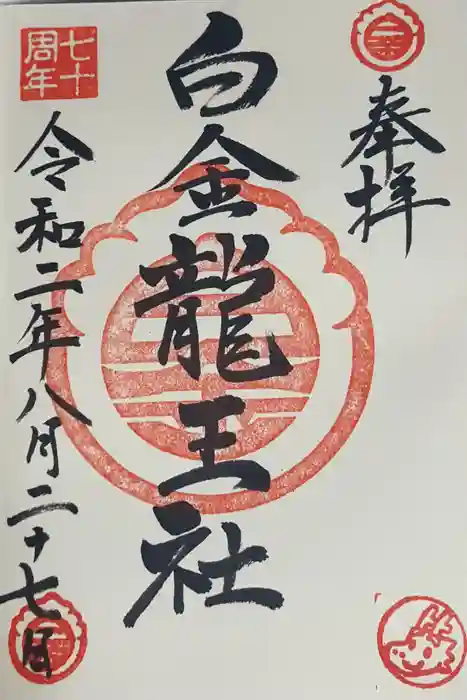 奉拝
白金龍王社
七十
周年
令和二年八月二十七日